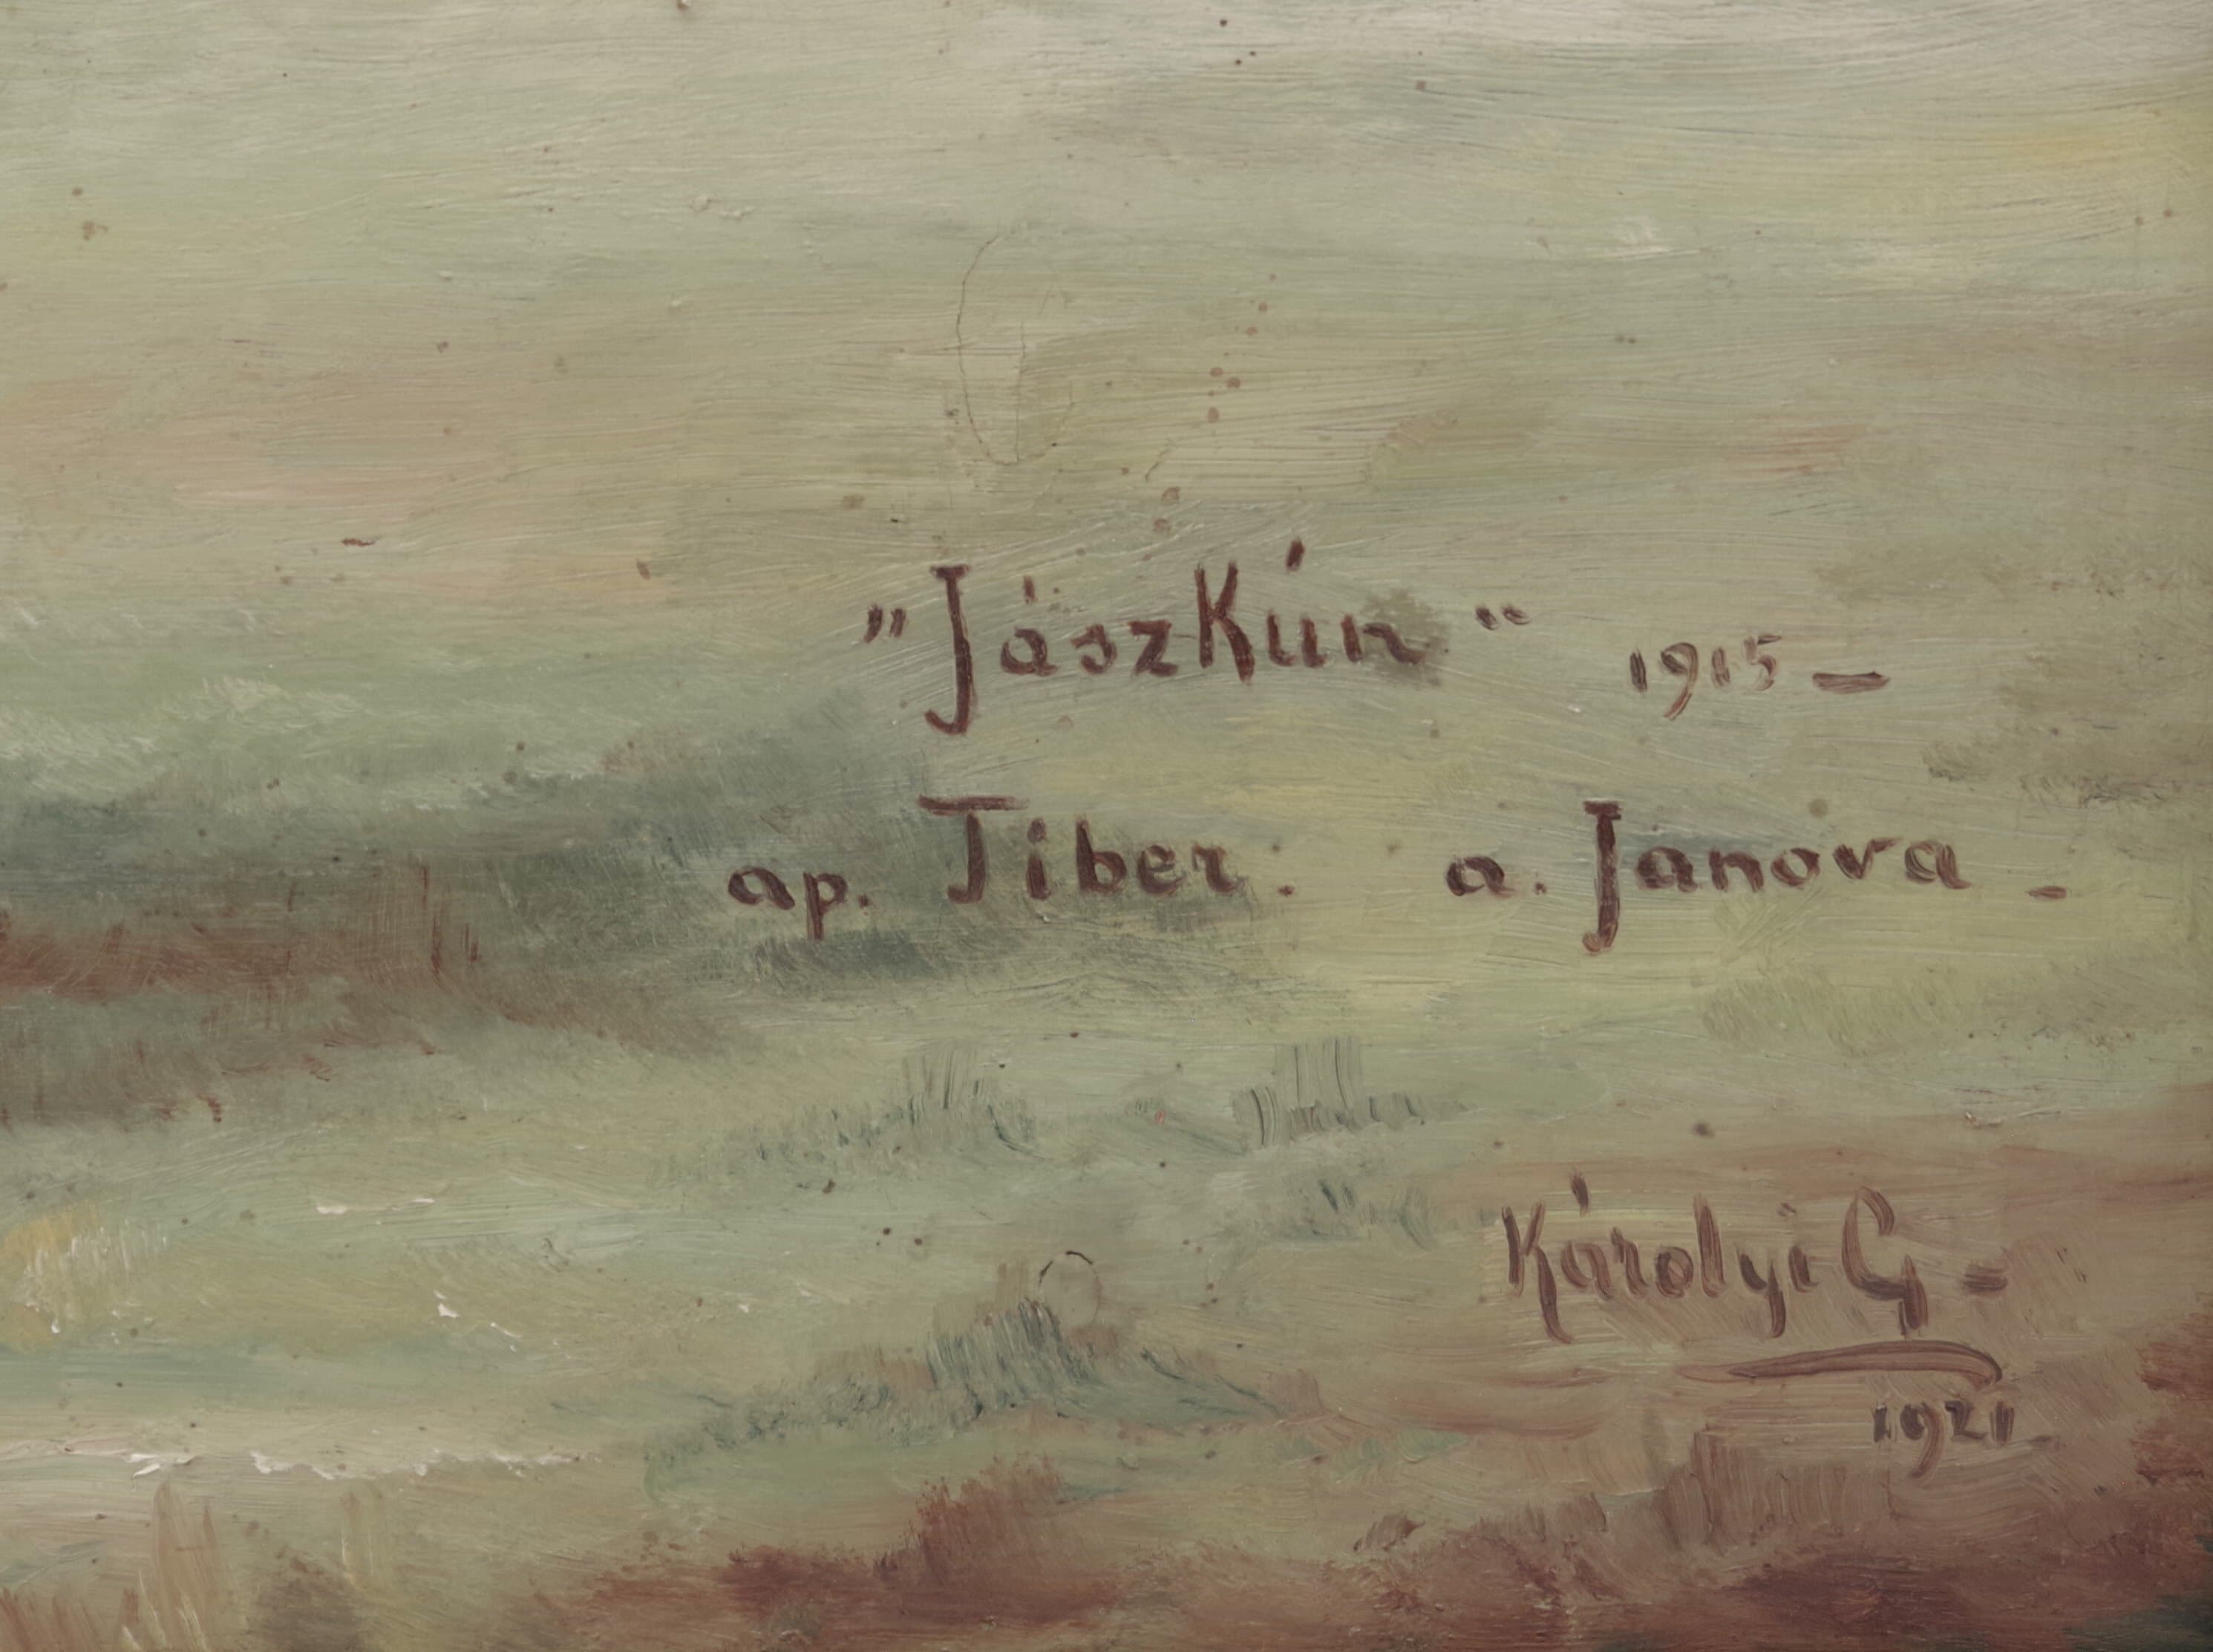 "JászKún" 1915 —
ap. Tiber. a. Janova -
Károlyi G -
1921